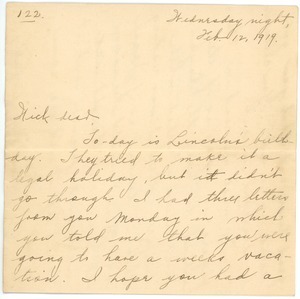 122.
Wednesday night,
Feb. 12, 1919.
Mick dear,
To-day is Lincoln's birth-
day. They tried to make it a
legal holiday, but it didn't
go through. I had three letters
from you Monday in which
you told me that you were
going to have a weeks vaca-
tion. I hope you had a